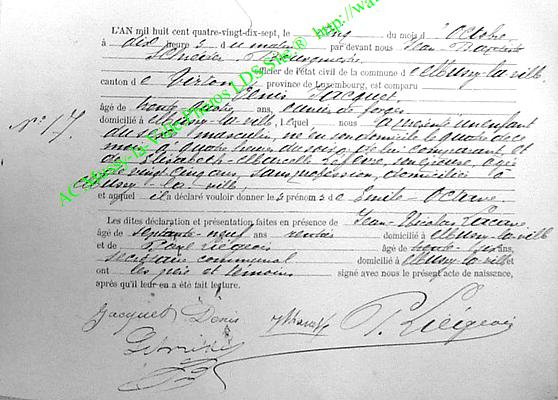 L'AN mil huit cent quatre-vingt-dix-sept, le du mois d'Octobre
à dix heures du matin par devant nous Jean Baptiste
Bourgmestre
officier de l'état civil de la commune de Mussy-la-ville
canton de Virton province de Luxembourg, est comparu
Denis Jacquet
âgé de trente quatre ans,
domicilié à Mussy-la-ville, lequel nous a présenté un enfant
du sexe masculin, né en son domicile le quatre de ce
mois à quatre heures du soir, de lui comparant et
de Elisabeth Marcelle Lefèvre, son épouse, âgée
de vingt cinq ans, sans profession, domiciliée à
Mussy-la-ville,
et auquel il a déclaré vouloir donner les prénoms de Emile-Octave.
Les dites déclaration et présentation faites en présence de Jean-Nicolas
âgé de septante neuf ans rentier domicilié à Mussy-la-ville
et de Paul Liégeois âgé de trente ans,
secrétaire communal domicilié à Mussy-la-ville
ont les père et témoins signé avec nous le présent acte de naissance,
après qu'il leur en a été fait lecture.
N° 17
Jacquet Denis
P. Liégeois
AC Mussy-la-Ville Photos LDS Site:® http://wa